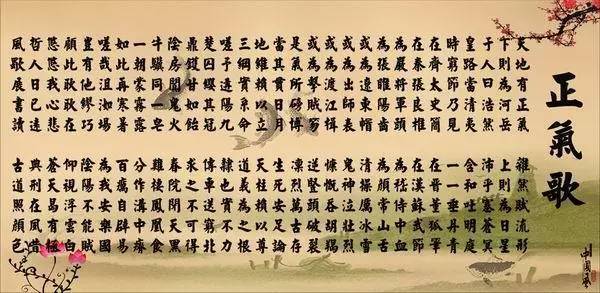 正氣歌
天地有正氣 雜然賦流形
下則為河岳 上則為日星
于人曰浩然 沛乎塞蒼冥
皇路當清夷 含和吐明庭
時窮節乃見 一一垂丹青
在齊太史簡 在晉董狐筆
在秦張良椎 在漢蘇武節
為嚴將軍頭 為嵇侍中血
為張睢陽齒 為顏常山舌
或為遼東帽 清操厲冰雪
或為出師表 鬼神泣壯烈
或為渡江楫 慷慨吞胡羯
或為擊賊笏 逆豎頭破裂
是氣所磅礡 凜烈萬古存
當其貫日月 生死安足論
地維賴以立 天柱賴以尊
三綱實系命 道義為之根
嗟予遘陽九 隸也實不力
楚囚纓其冠 傳車送窮北
鼎鑊甘如飴 求之不可得
陰房闃鬼火 春院閉天黑
牛驥同一皂 雞棲鳳凰食
一朝蒙霧露 分作溝中瘠
如此再寒暑 百癘自辟易
嗟哉沮洳場 為我安樂國
豈有他繆巧 陰陽不能賊
顧此耿耿在 仰視浮雲白
悠悠我心悲 蒼天曷有極
哲人日已遠 典刑在夙昔
風檐展書讀 古道照顏色
中國風